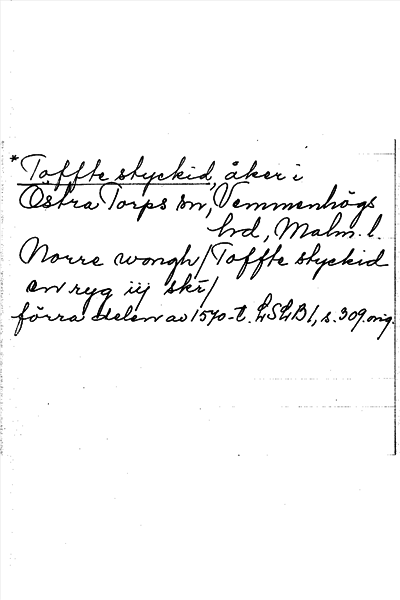 *Toffte styckid, åker i
Östra Torps sn, Vemmenhögs
hd, Malm. l.
Norre wongh / Toffte styckid
en ryg iij skr /
förra delen av 1570-t. LSLB 1, s. 309. orig.